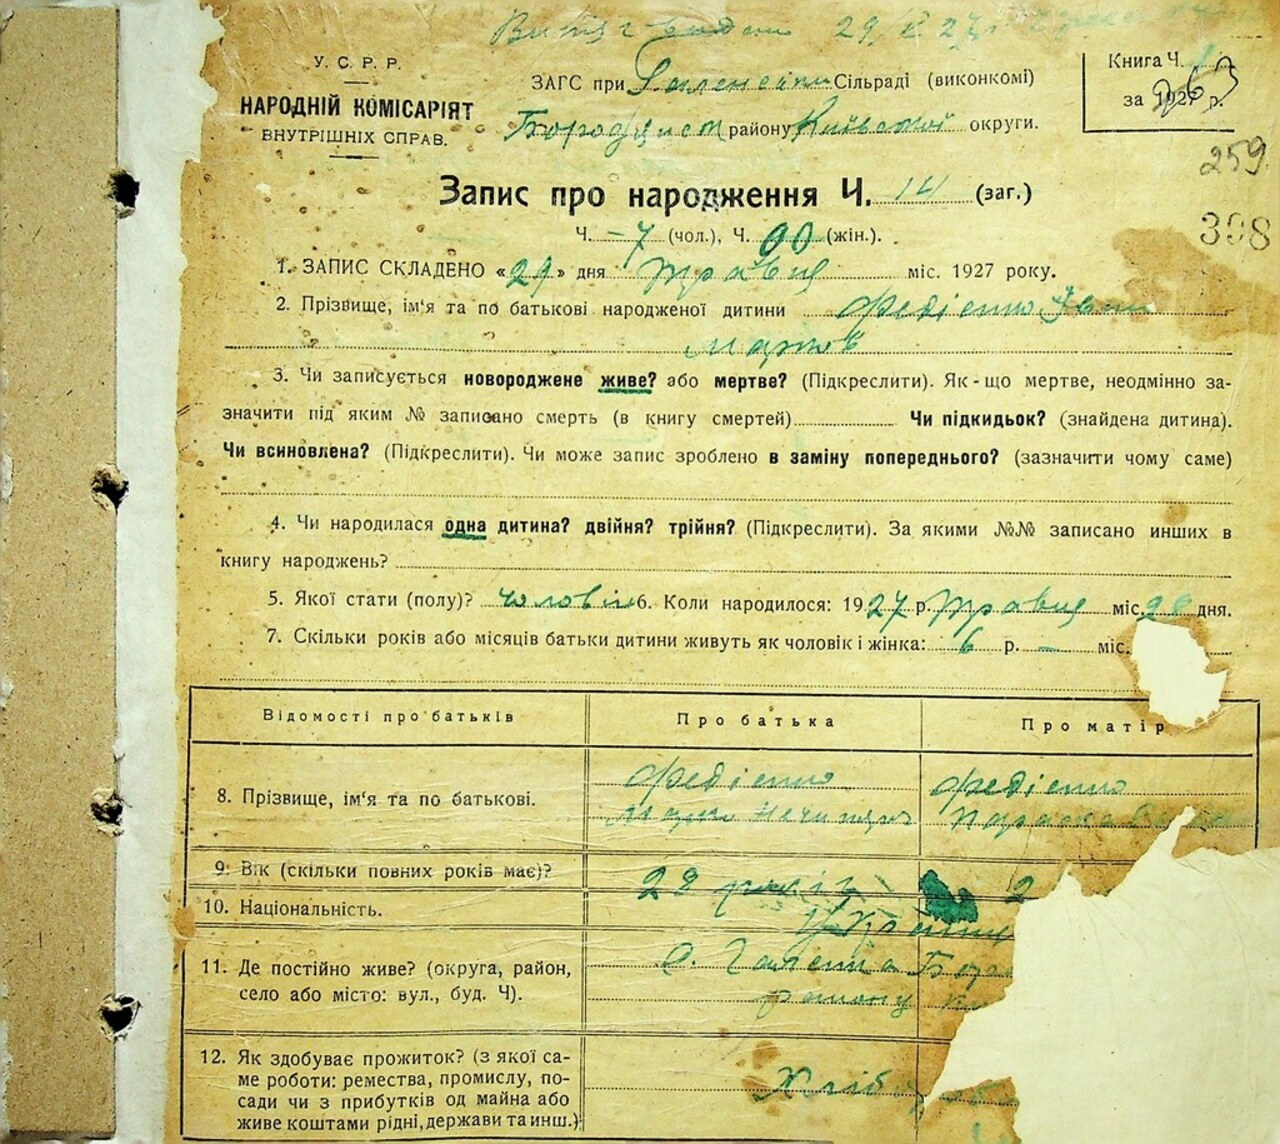 Витяг видано 29/
У. С. Р. Р.
НАРОДНІЙ КОМІСАРІЯТ
ВНУТРІШНІХ СПРАВ.
ЗАГС при Сільраді (виконкомі)
району Київської округи.
Книга Ч. 1
за 1927 р.
263
259
398
Запис про народження Ч. 14 (заг.)
Ч. – 7 (чол.), Ч. (жін.).
1. ЗАПИС СКЛАДЕНО «29» дня травня міс. 1927 року.
2. Прізвище, ім'я та по батькові народженої дитини Федієнко Іван
Марков
3. Чи записується новороджене живе? або мертве? (Підкреслити). Як-що мертве, неодмінно за-
значити під яким № записано смерть (в книгу смертей) Чи підкидьок? (знайдена дитина).
Чи всиновлена? (Підкреслити). Чи може запис зроблено в заміну попереднього? (зазначити чому саме)
4. Чи народилася одна дитина? двійня? трійня? (Підкреслити). За якими №№ записано инших в
книгу народжень?
5. Якої стати (полу)? чоловіч 6. Коли народилося: 1927 р. травня міс. 28 дня.
7. Скільки років або місяців батьки дитини живуть як чоловік і жінка: 6 р. — міс.
Відомості про батьків Про батька Про матір
8. Прізвище, ім'я та по батькові. Федієнко Федієнко
Марко Нечипор Параска
9. Вік (скільки повних років має)? 28 років 2
10. Національність.
11. Де постійно живе? (округа, район, с. Галенка
село або місто: вул., буд. Ч). району
12. Як здобуває прожиток? (з якої са-
ме роботи: ремества, промислу, по- Хліб
сади чи з прибутків од майна або
живе коштами рідні, держави та инш.)